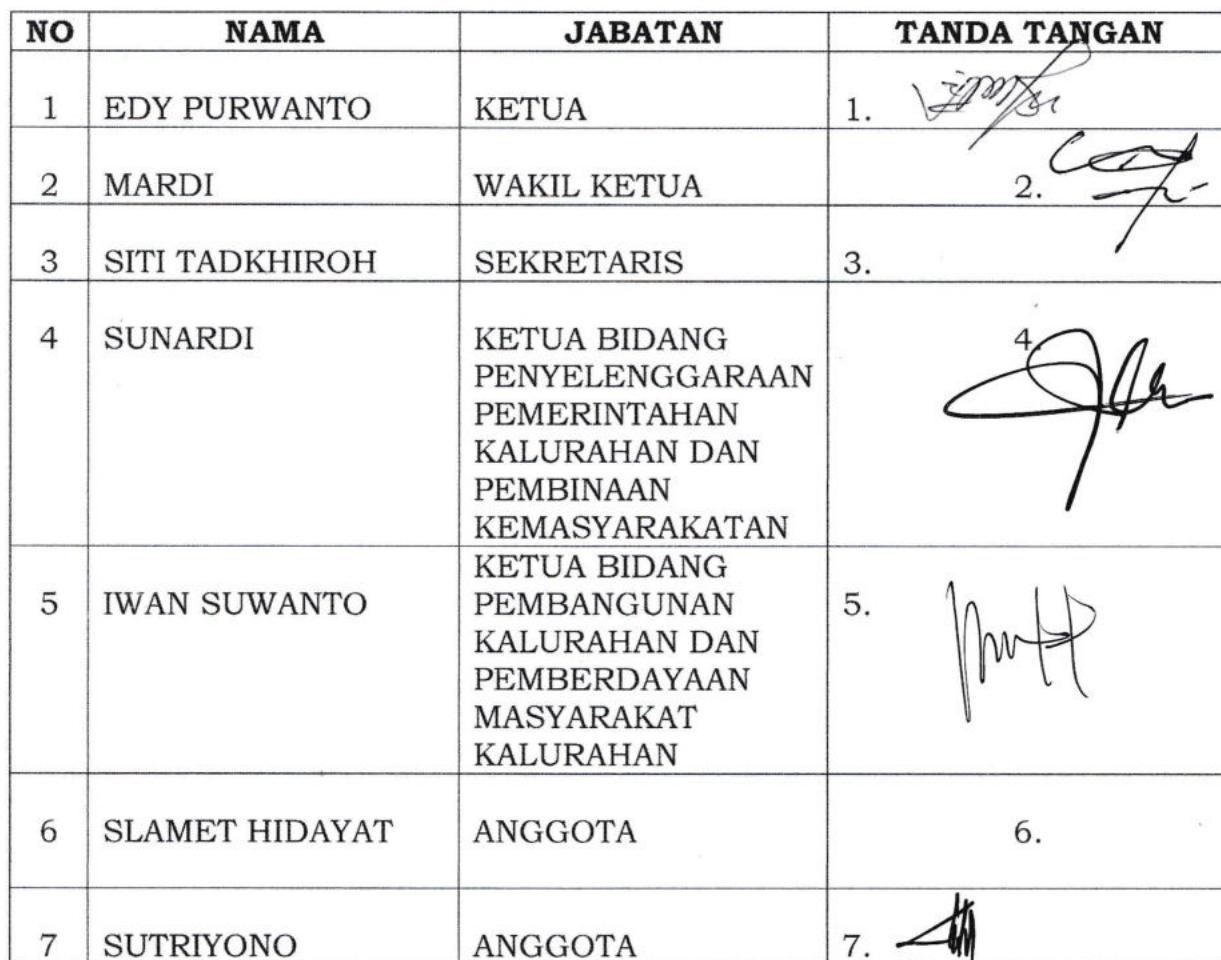 NO NAMA JABATAN TANDA TANGAN
1 EDY PURWANTO KETUA 1.
2 MARDI WAKIL KETUA 2.
3 SITI TADKHIROH SEKRETARIS 3.
4 SUNARDI KETUA BIDANG 4.
PENYELENGGARAAN
PEMERINTAHAN
KALURAHAN DAN
PEMBINAAN
KEMASYARAKATAN
KETUA BIDANG
5 IWAN SUWANTO PEMBANGUNAN 5.
KALURAHAN DAN
PEMBERDAYAAN
MASYARAKAT
KALURAHAN
6 SLAMET HIDAYAT ANGGOTA 6.
7 SUTRIYONO ANGGOTA 7.